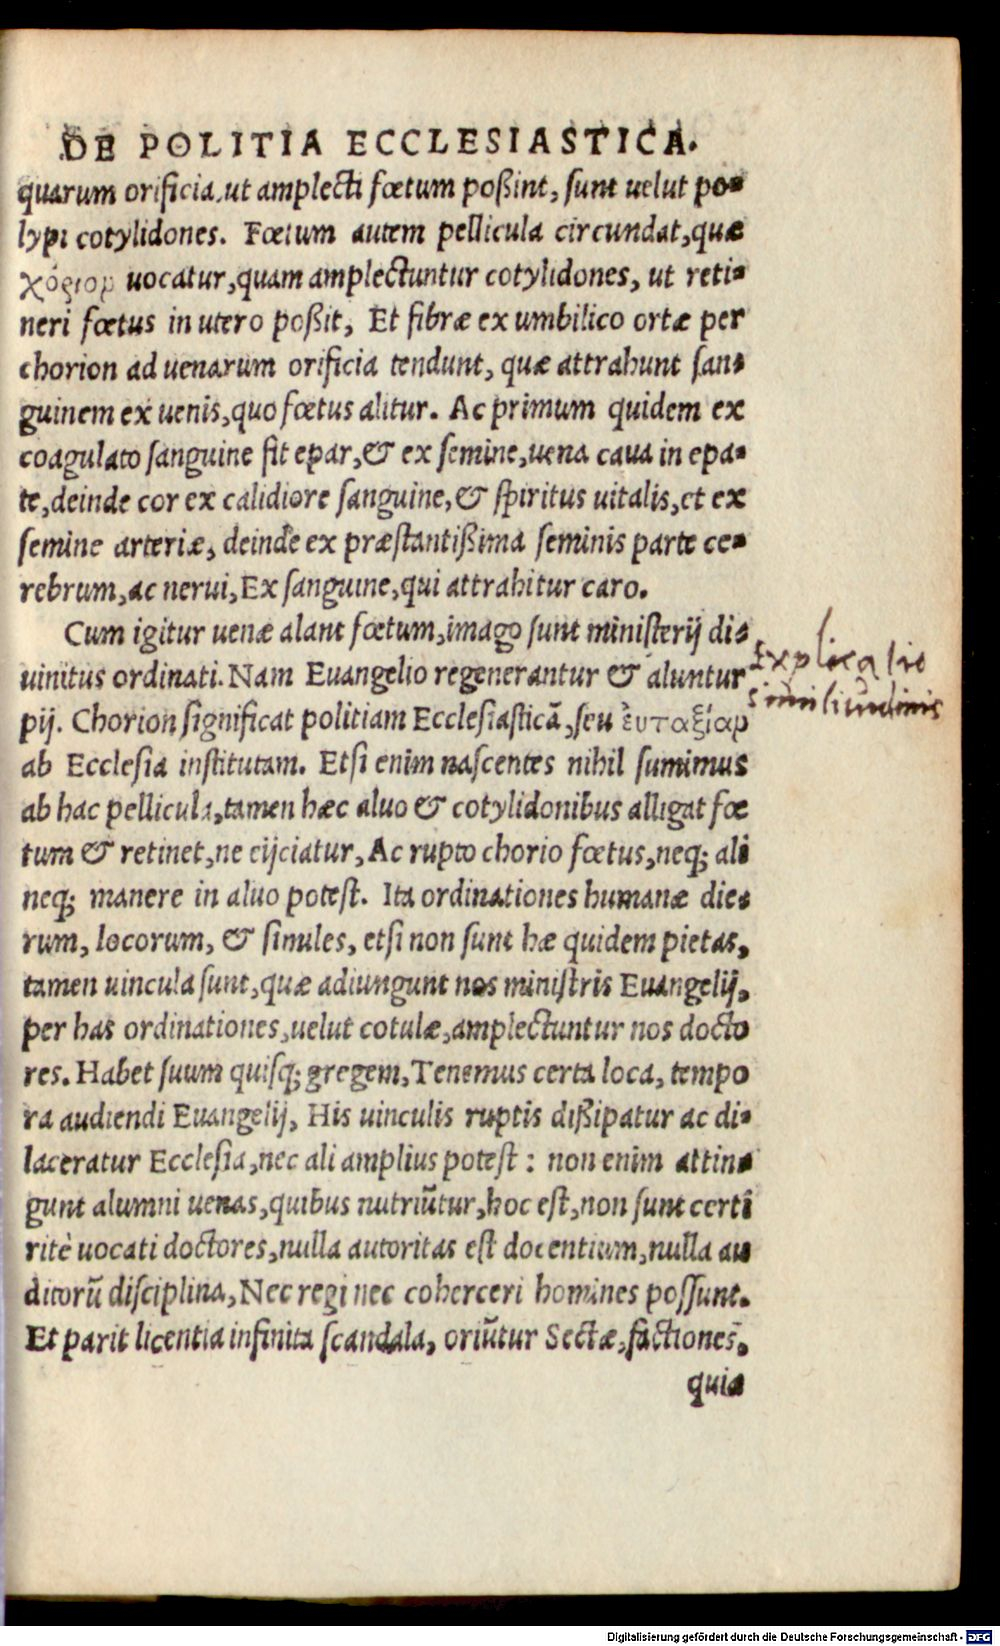 DE POLITIA ECCLESIASTICA.
quarum orificia, ut amplecti fœtum poßint, sunt uelut po-
lypi cotylidones. Fœtum autem pellicula circundat, quæ
χόριον uocatur, quam amplectuntur cotylidones, ut reti-
neri fœtus in utero poßit, Et fibræ ex umbilico ortæ per
chorion ad uenarum orificia tendunt, quæ attrahunt san-
guinem ex uenis, quo fœtus alitur. Ac primum quidem ex
coagulato sanguine fit epar, & ex semine, uena caua in epa-
te, deinde cor ex calidiore sanguine, & spiritus uitalis, et ex
semine arteriæ, deinde ex præstantißima seminis parte ce-
rebrum, ac nerui, Ex sanguine, qui attrahitur caro.
Cum igitur uenæ alant fœtum, imago sunt ministerij di-
uinitus ordinati. Nam Euangelio regenerantur & aluntur
pij. Chorion significat politiam Ecclesiasticā, seu ἐυταξίαν
ab Ecclesia institutam. Etsi enim nascentes nihil sumimus
ab hac pellicula, tamen hæc aluo & cotylidonibus alligat fœ
tum & retinet, ne eijciatur, Ac rupto chorio fœtus, neq; ali
neq; manere in aluo potest. Ita ordinationes humanæ die-
rum, locorum, & similes, etsi non sunt hæ quidem pietas,
tamen uincula sunt, quæ adiungunt nos ministris Euangelij,
per has ordinationes, uelut cotulæ, amplectuntur nos docto
res. Habet suum quisq; gregem, Tenemus certa loca, tempo
ra audiendi Euangelij, His uinculis ruptis dißipatur ac di-
laceratur Ecclesia, nec ali amplius potest : non enim attin-
gunt alumni uenas, quibus nutriūtur, hoc est, non sunt certi
ritè uocati doctores, nulla autoritas est docentium, nulla au
ditorū disciplina, Nec regi nec coherceri homines possunt.
Et parit licentia infinita scandala, oriūtur Sectæ, factiones,
quia
Explicatio
similitudinis
Digitalisierung gefördert durch die Deutsche Forschungsgemeinschaft - DFG